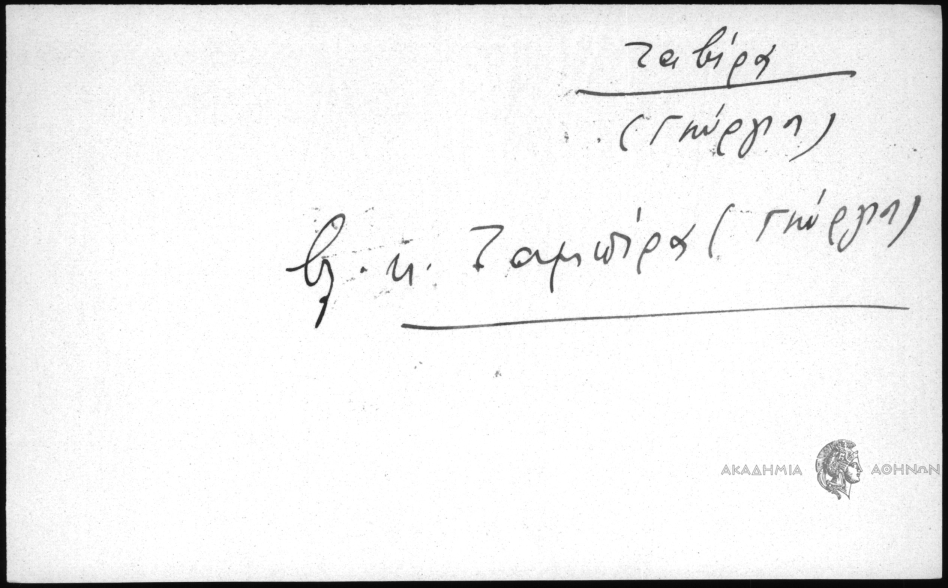 Ταβίρα
(Γκύργκη)
βλ. κ. Ταμπίρα (Γκύργκη)
ΑΚΑΔΗΜΙΑ ΑΘΗΝΩΝ